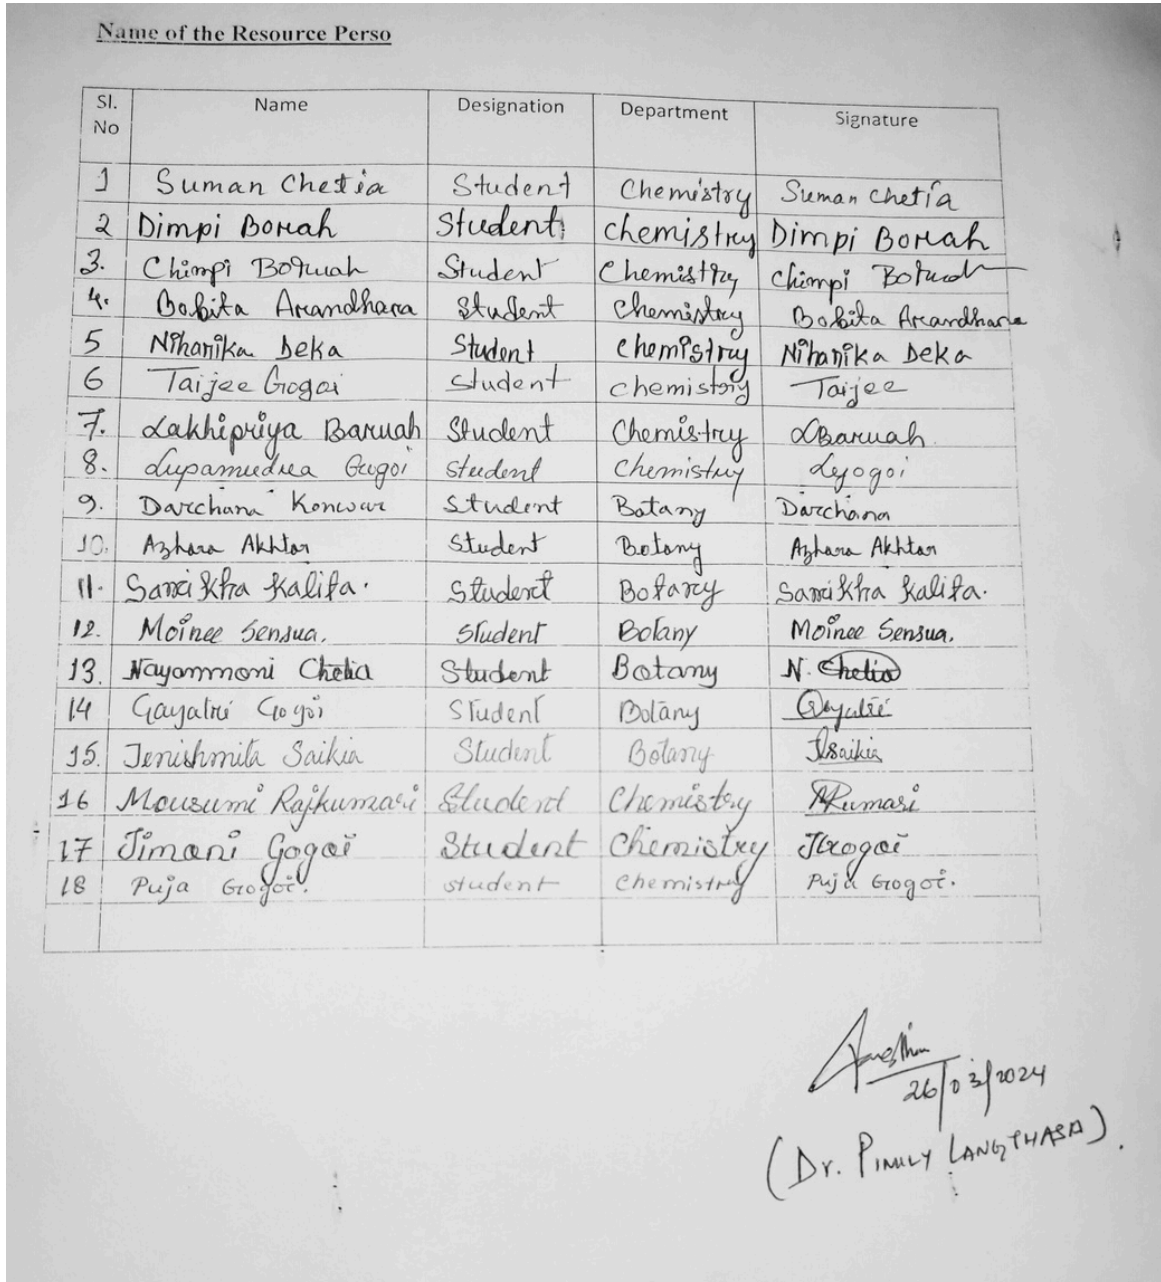 Name of the Resource Perso
Sl. No Name Designation Department Signature
1 Suman Chetia Student Chemistry Suman Chetia
2 Dimpi Borah Student Chemistry Dimpi Borah
3. Chimpi Boruah Student Chemistry Chimpi Boruah
4. Bobita Arandhara Student Chemistry Bobita Arandhara
5 Niharika Deka Student Chemistry Niharika Deka
6 Taijee Gogoi Student Chemistry Taijee
7. Lakhipriya Baruah Student Chemistry LBaruah
8. Lupamudra Gogoi Student Chemistry LGogoi
9. Darchana Konwar Student Botany Darchana
10. Azhara Akhtar Student Botany Azhara Akhtar
11. Student Botany
12. Moinee Sensua. Student Botany Moinee Sensua.
13. Nayanmoni Chetia Student Botany N. Chetia
14 Gayatri Gogoi Student Botany Gayatri
15. Jenishmita Saikia Student Botany JSaikia
16 Mousumi Rajkumari Student Chemistry RKumari
17 Jimani Gogoi Student Chemistry JGogoi
18 Puja Gogoi. Student Chemistry Puja Gogoi.
26/03/2024
(Dr. LANGTHASA).